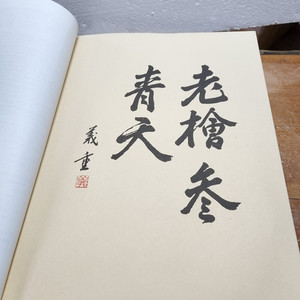 老檜參
青天
義重